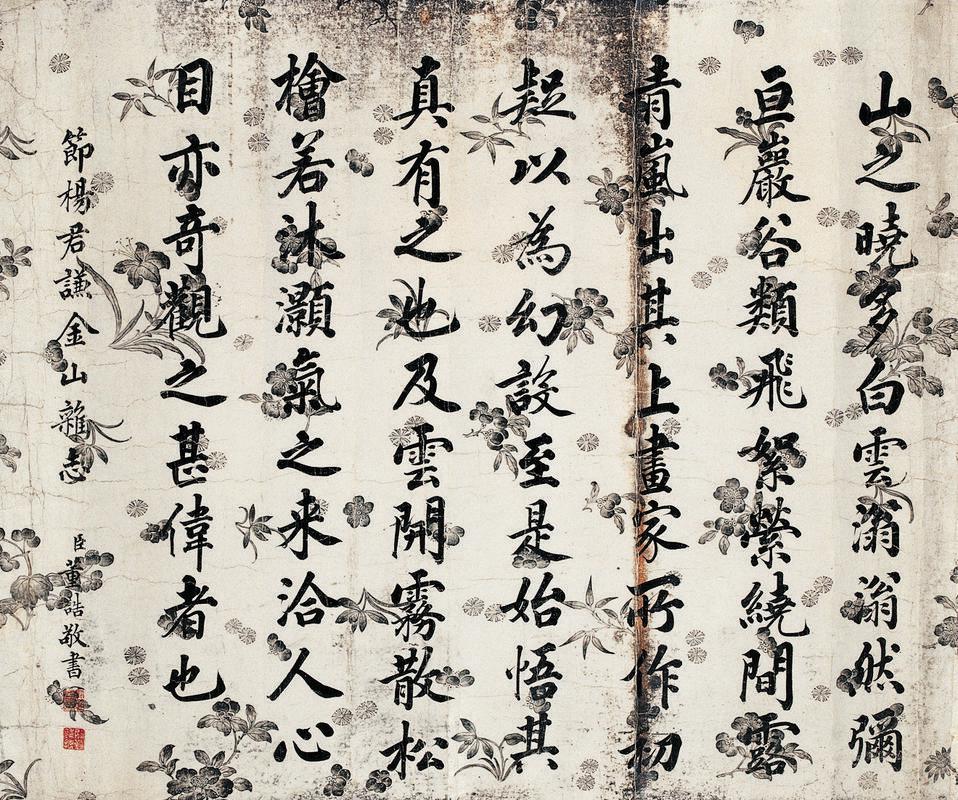 山之曉多白雲滃滃然彌
亘巖谷類飛絮縈繞間露
青嵐出其上畫家所作初
疑以為幻設至是始悟其
真有之也及雲開霧散松
檜若沐灝氣之来洽人心
目亦奇觀之甚偉者也
節楊君謙金山雜志
臣董誥敬書